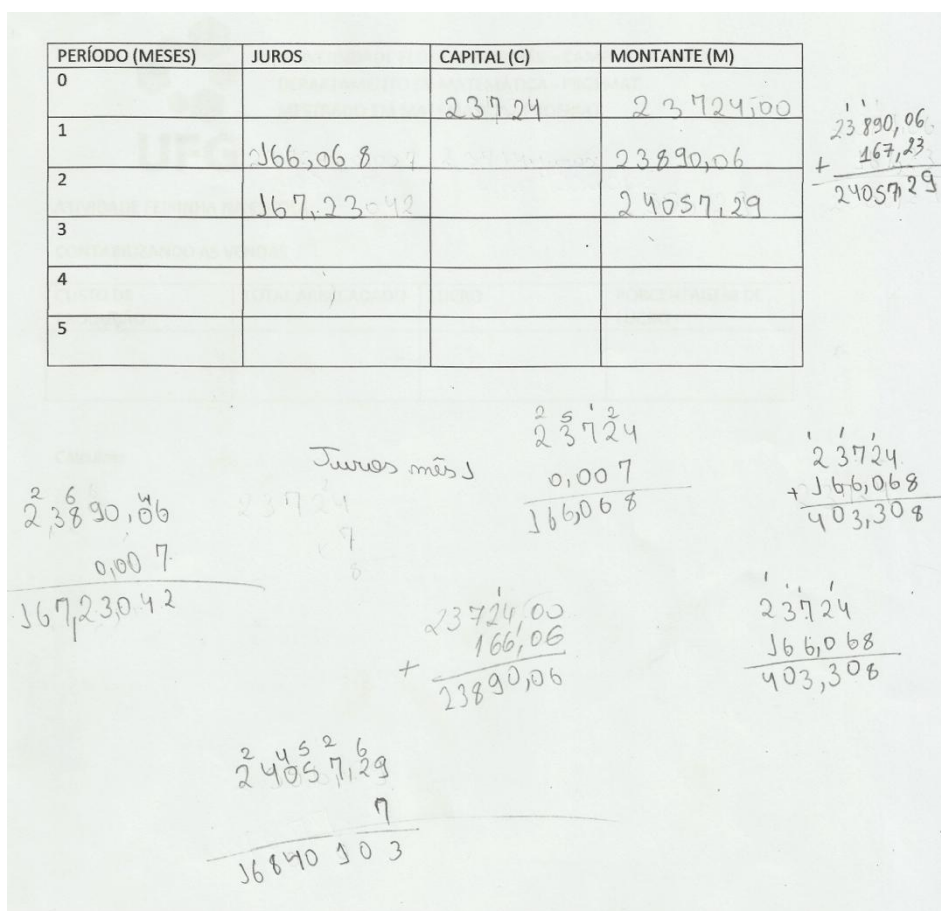 PERÍODO (MESES) JUROS CAPITAL (C) MONTANTE (M)
0 23724 23724,00
1 166,068 23890,06
2 167,23042 24057,29
3
4
5
23890,06
+ 167,23
24057,29
Juros mês 1
23724
0,007
166,068
23724
+ 166,068
403,308
23890,06
0,007
167,23,042
23724
7
8
23724,00
+ 166,06
23890,06
23724
166,068
403,308
24057,29
7
16840103